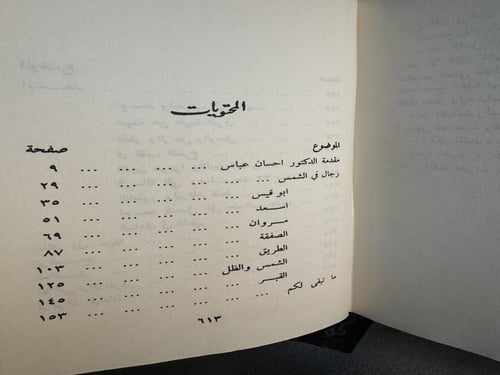 المحتويات
الموضوع صفحة
مقدمة الدكتور احسان عباس ... ... ... ... ٩
رجال في الشمس ... ... ... ... ... ٢٩
ابو قيس ... ... ... ... ٣٥
اسعد ... ... ... ... ٥١
مروان ... ... ... ... ٦٩
الصفقة ... ... ... ... ٨٧
الطريق ... ... ... ... ١٠٣
الشمس والظل ... ... ... ... ١٢٥
القبر ... ... ... ... ١٤٥
ما تبقى لكم ... ... ... ... ... ١٥٣
٦١٣